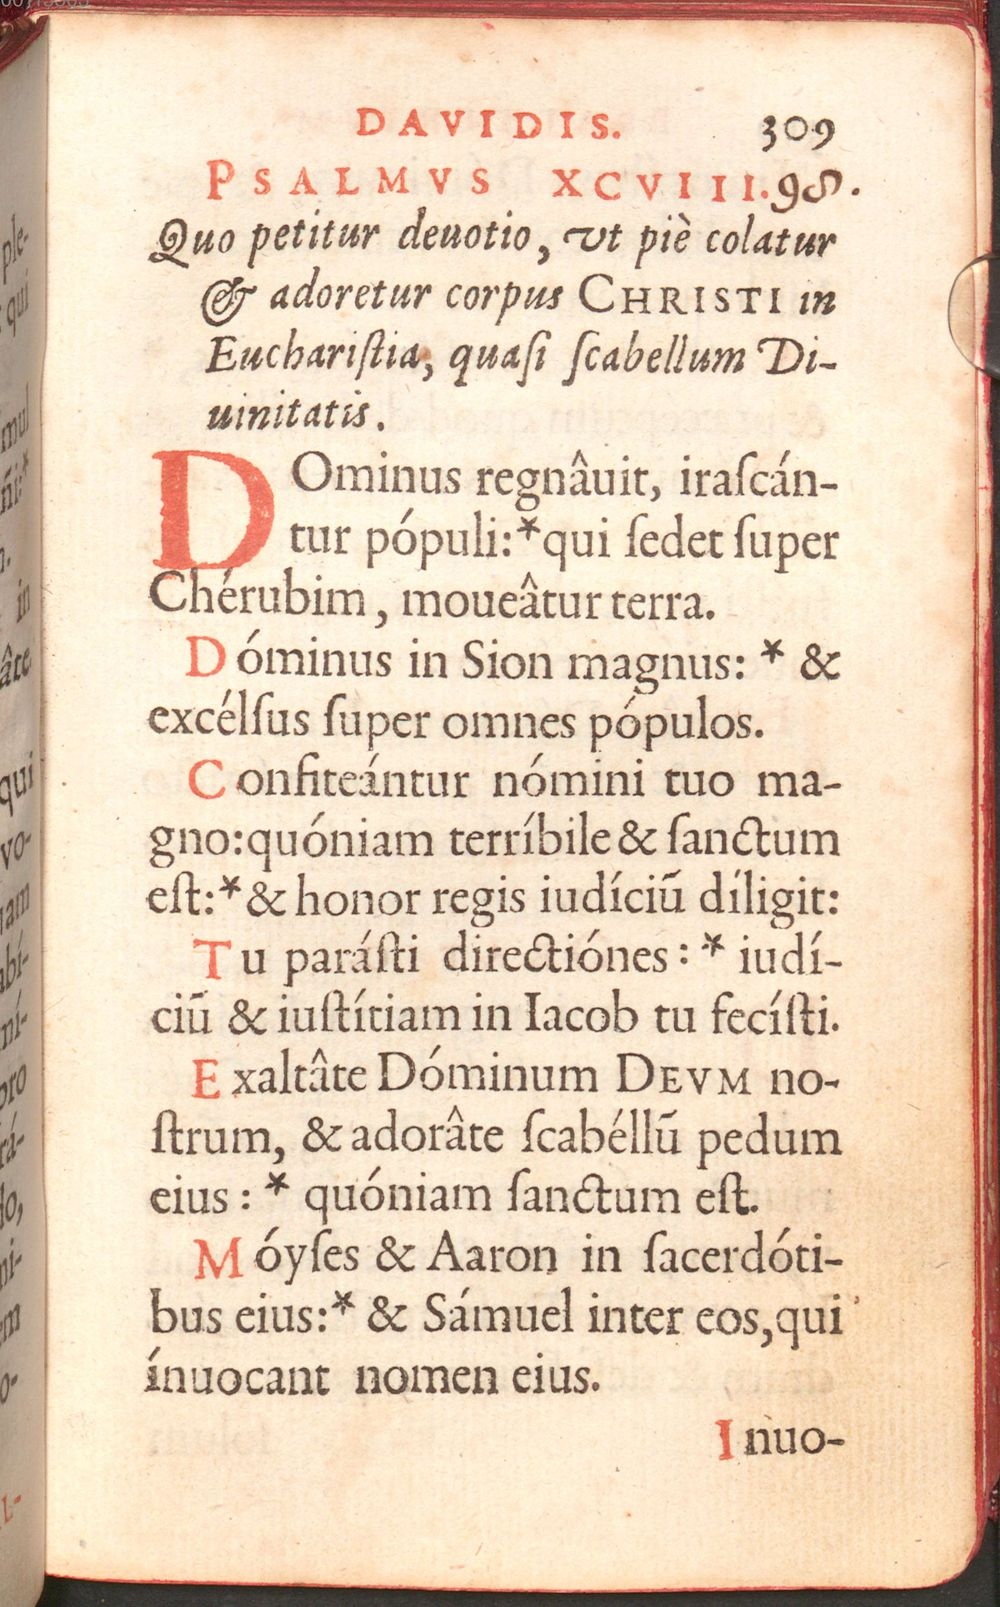 DAVIDIS. 309
PSALMVS XCVIII. 98.
Quo petitur deuotio, vt piè colatur
& adoretur corpus CHRISTI in
Euchariſtia, quaſi ſcabellum Di-
uinitatis.
DOminus regnâuit, iraſcán-
tur pópuli:*qui ſedet ſuper
Chérubim, moueâtur terra.
Dóminus in Sion magnus: * &
excélſus ſuper omnes pópulos.
Confiteántur nómini tuo ma-
gno:quóniam terríbile & ſanctum
eſt:* & honor regis iudíciũ díligit:
Tu paráſti directiónes: * iudí-
ciũ & iuſtítiam in Iacob tu fecíſti.
Exaltâte Dóminum DEVM no-
ſtrum, & adorâte ſcabéllũ pedum
eius: * quóniam ſanctum eſt.
Móyſes & Aaron in ſacerdóti-
bus eius:* & Sámuel inter eos,qui
ínuocant nomen eius.
Inuo-